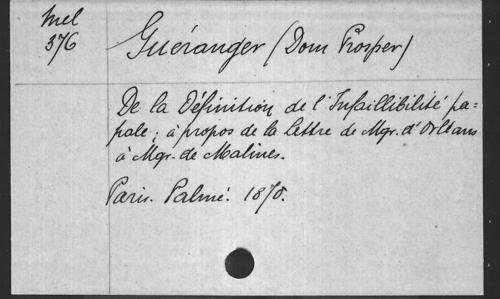 Mel
376
Guéranger (Dom Prosper)
De la Définition de l'Infaillibilité pa-
pale; à propos de la lettre de Mgr. d'Orléans
à Mgr. de Malines.
Paris. Palmé. 1870.